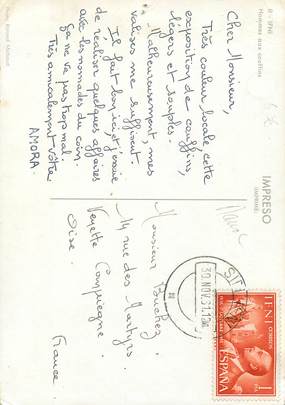 8 - IFNI
Hombres aux couffins
Cher Monsieur,
Très couleur locale cette
exposition de couffins,
légers et souples.
Malheureusement, mes
valises me suffisent.
Il fait bon ici, et j'envie
de réaliser quelques affaires
avec les nomades du coin.
Ça ne va pas trop mal.
Très amicalement vôtre
AMORA.
IMPRESO
(IMPRIMÉ)
Monsieur Bouchez
14 rue des Martyrs
Venette Compiègne
Oise.
France
SIFNI
30 NOV. 61.12
IFNI
CORREOS
1
PTA
ESPAÑA